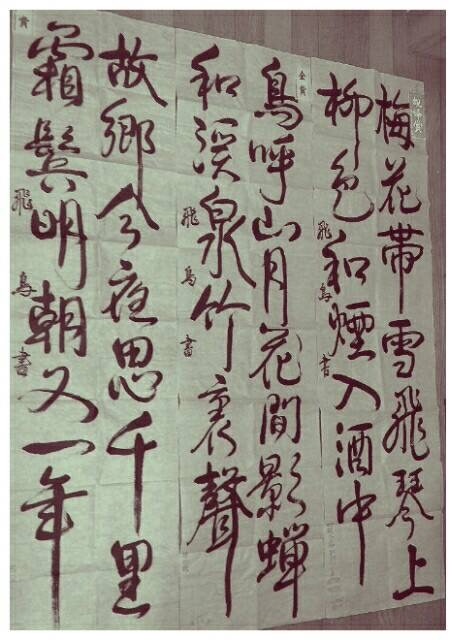 梅花帶雪飛琴上
柳色和煙入酒中
飛鳥書
鳥呼山月花間影蟬
和溪泉竹裏聲
飛鳥書
故鄉今夜思千里
霜鬢明朝又一年
飛鳥書